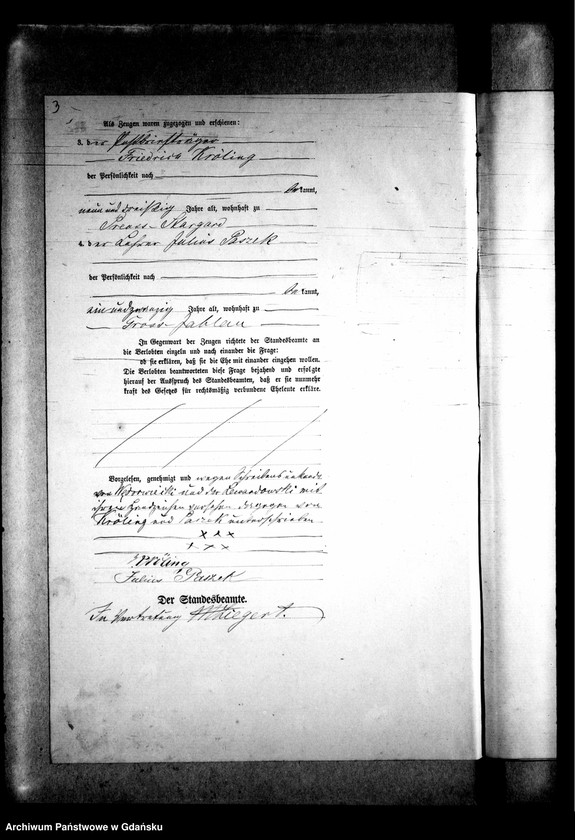 3
Als Zeugen waren zugezogen und erschienen:
3. der Postbriefträger
Friedrich Kröling
der Persönlichkeit nach
be kannt,
neun und dreißig Jahre alt, wohnhaft zu
Preuss. Stargard
4. der Julius Paszek
der Persönlichkeit nach
be kannt,
ein und zwanzig Jahre alt, wohnhaft zu
Gross Jablau
In Gegenwart der Zeugen richtete der Standesbeamte an
die Verlobten einzeln und nach einander die Frage:
ob sie erklären, daß sie die Ehe mit einander eingehen wollen.
Die Verlobten beantworteten diese Frage bejahend und erfolgte
hierauf der Ausspruch des Standesbeamten, daß er sie nunmehr
kraft des Gesetzes für rechtmäßig verbundene Eheleute erkläre.
Vorgelesen, genehmigt und wegen Schreibens
von und der Lewandowski mit
ihren Handzeichen versehen dagegen von
Kröling und Paszek unterschrieben
x x x
x x x
F. Kröling
Julius Paszek
Der Standesbeamte.
In Vertretung Wiegert.
Archiwum Państwowe w Gdańsku